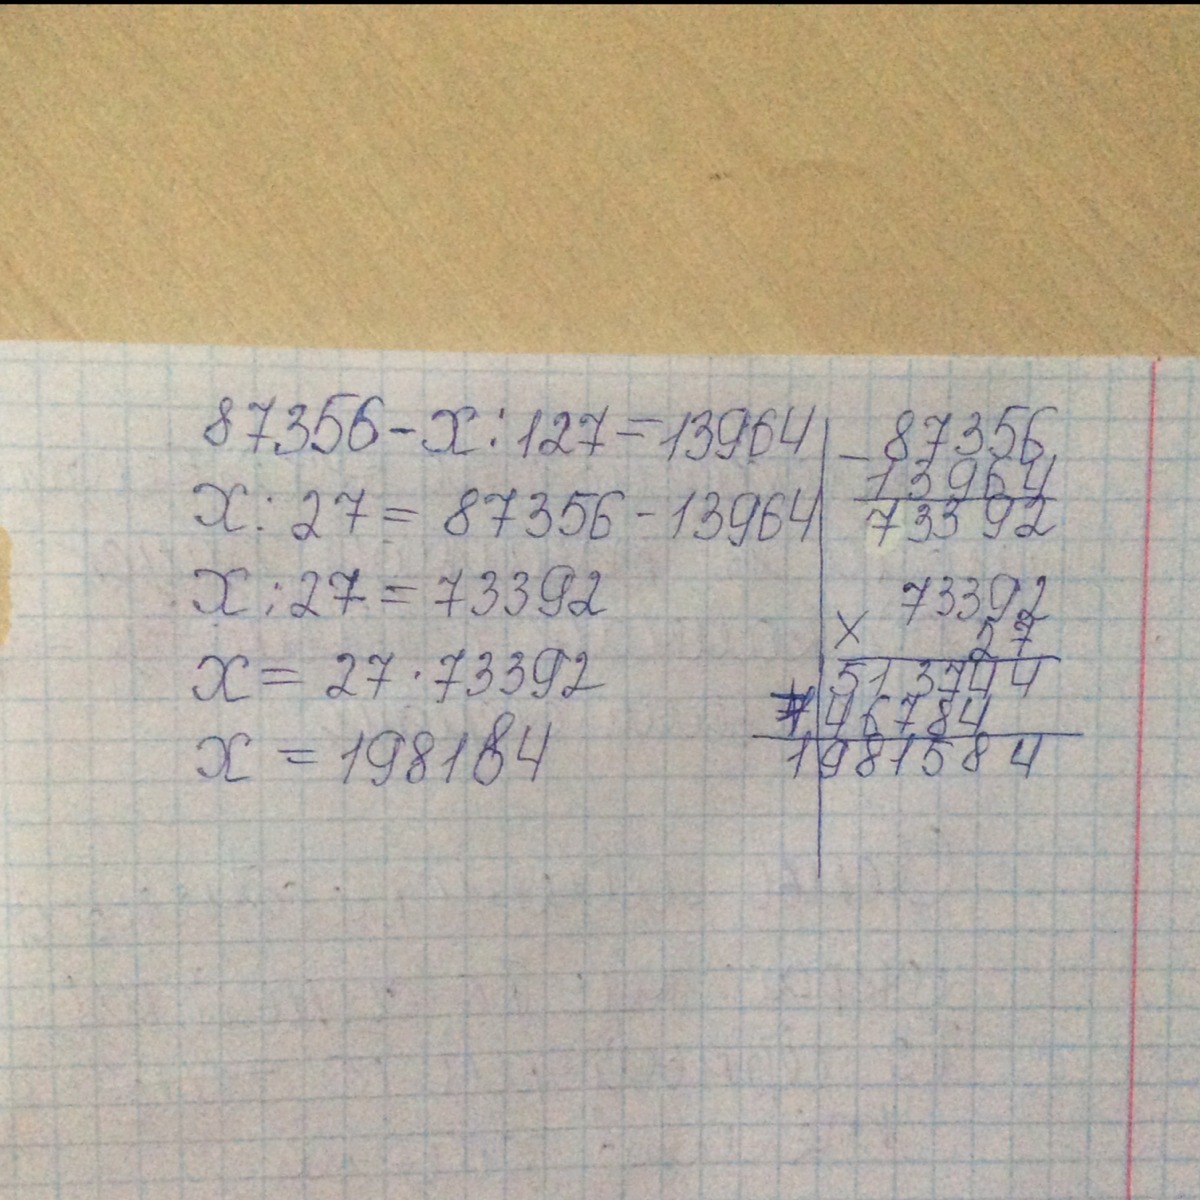 87356-x:127=13964
x:27=87356-13964
x:27=73392
x=27·73392
x=198184
-87356
13964
73392
73392
× 27
513744
146784
1981584